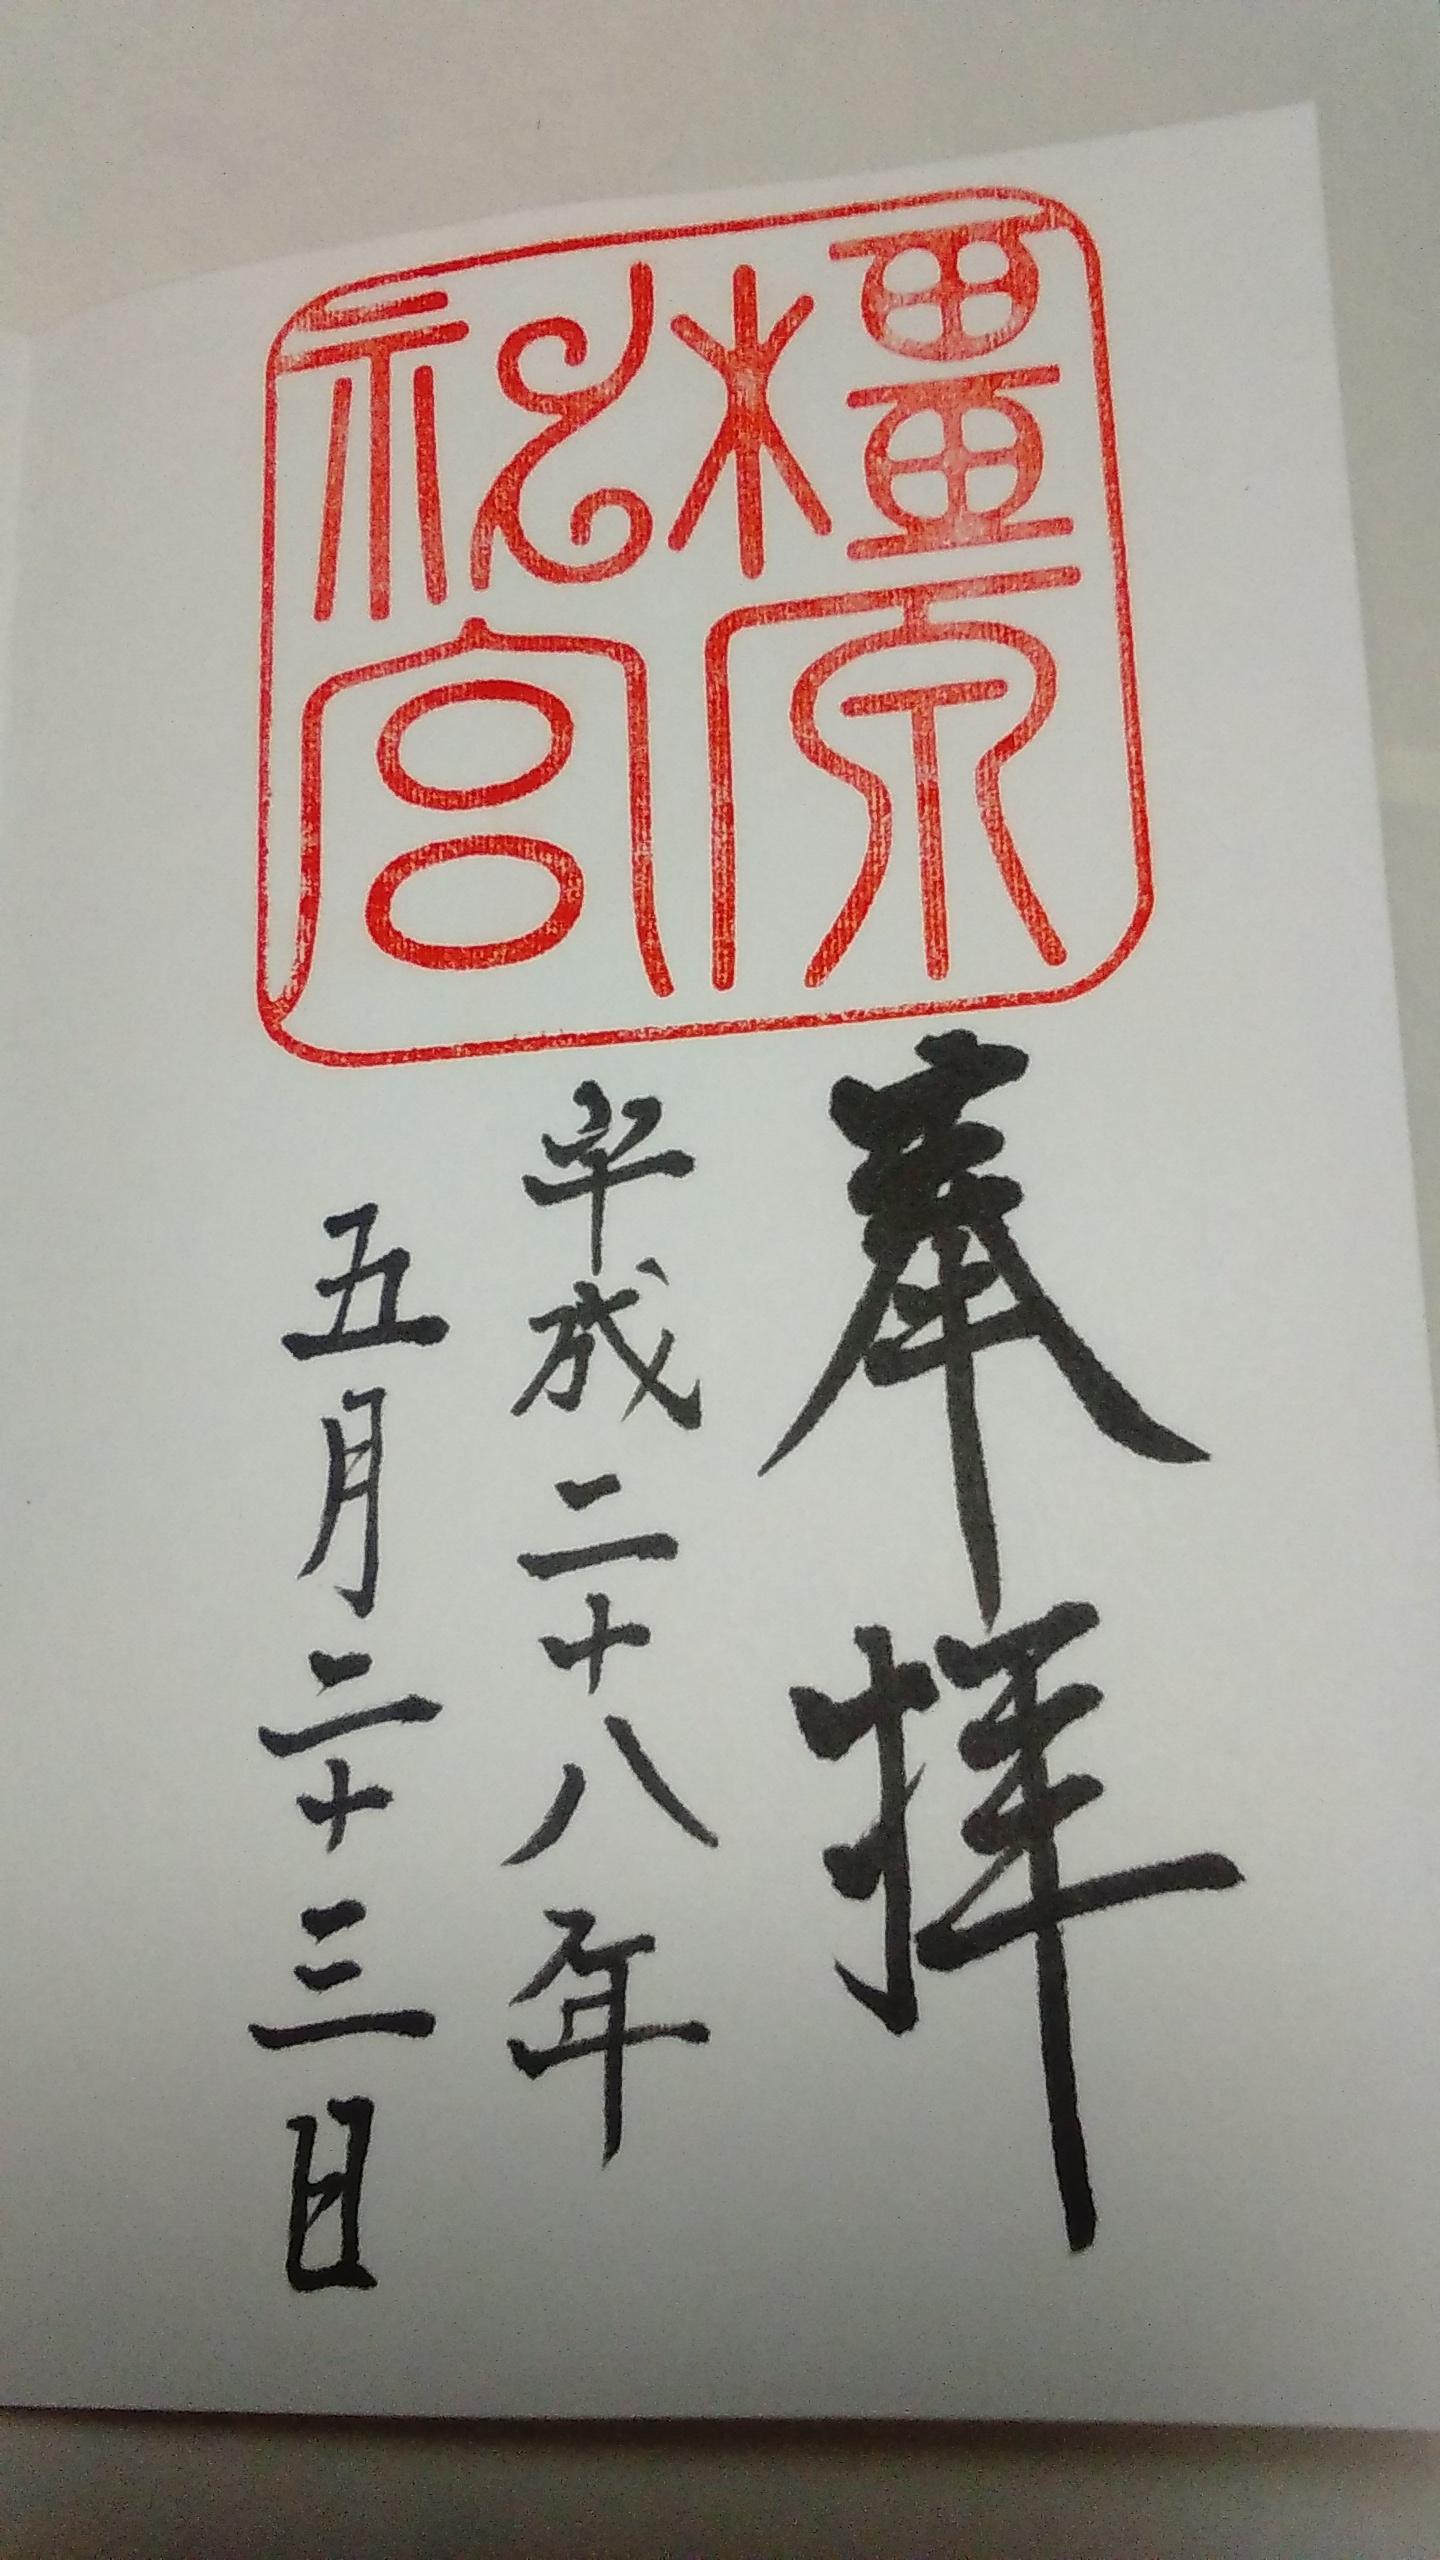 橿原
神宮
奉拝
平成二十八年
五月二十三日